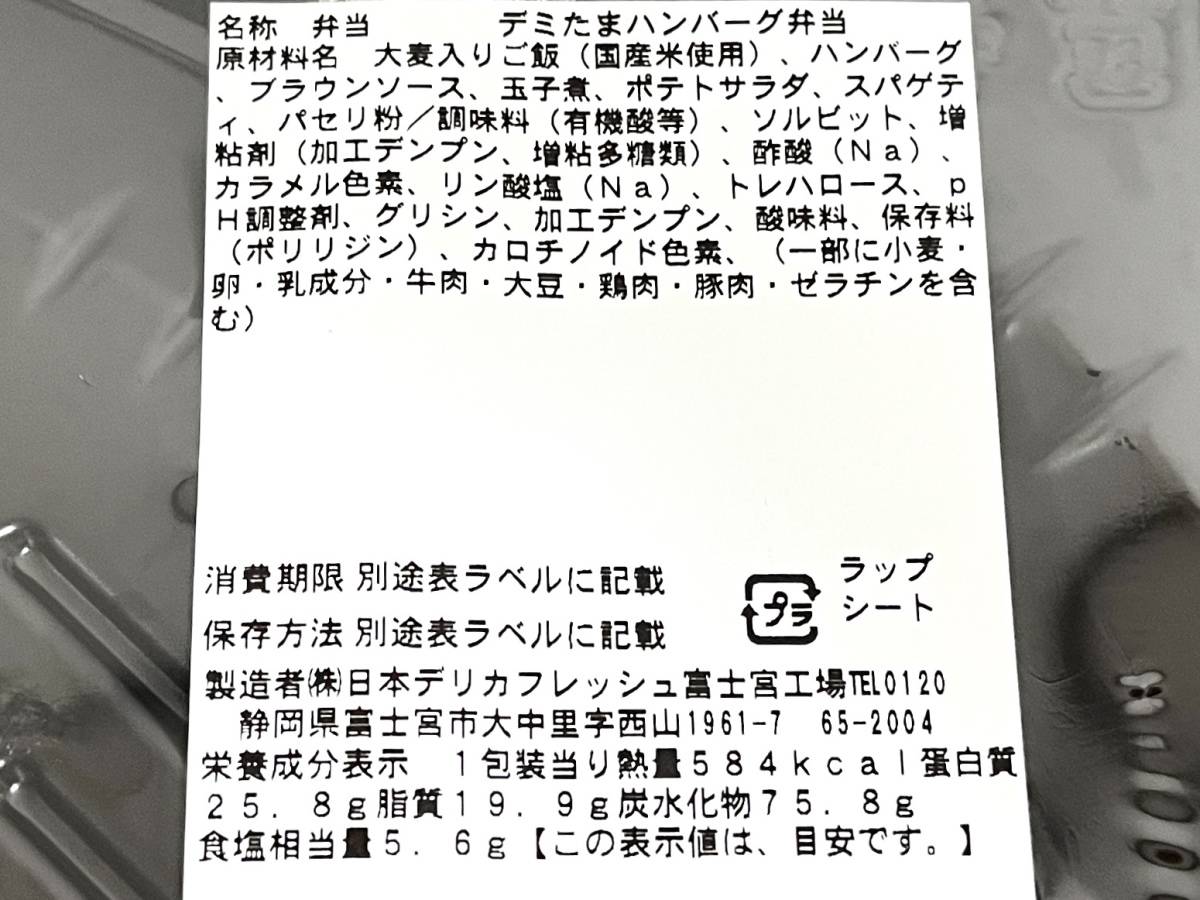 名称　弁当　　　　デミたまハンバーグ弁当
原材料名　大麦入りご飯（国産米使用）、ハンバーグ
、ブラウンソース、玉子煮、ポテトサラダ、スパゲテ
ィ、パセリ粉／調味料（有機酸等）、ソルビット、増
粘剤（加工デンプン、増粘多糖類）、酢酸（Ｎａ）、
カラメル色素、リン酸塩（Ｎａ）、トレハロース、ｐ
Ｈ調整剤、グリシン、加工デンプン、酸味料、保存料
（ポリリジン）、カロチノイド色素、（一部に小麦・
卵・乳成分・牛肉・大豆・鶏肉・豚肉・ゼラチンを含
む）
消費期限 別途表ラベルに記載
保存方法 別途表ラベルに記載
プラ
ラップ
シート
製造者㈱日本デリカフレッシュ富士宮工場TEL0120
静岡県富士宮市大中里字西山1961-7　65-2004
栄養成分表示　１包装当り熱量５８４ｋｃａｌ蛋白質
２５．８ｇ脂質１９．９ｇ炭水化物７５．８ｇ
食塩相当量５．６ｇ【この表示値は、目安です。】